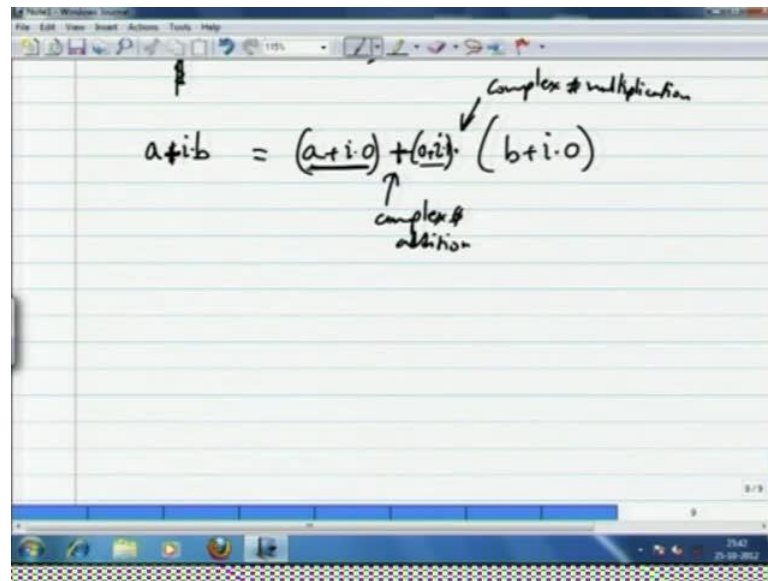 Note1 - Windows Journal
File Edit View Insert Actions Tools Help
115%
complex # multiplication
a+i·b = (a+i·0) + (0+i·1)· (b+i·0)
complex #
addition
9/9
9
23:42
25-10-2012